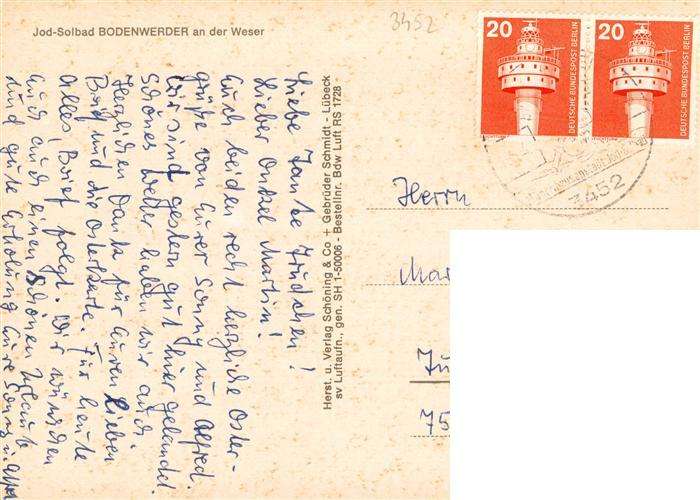 Jod-Solbad BODENWERDER an der Weser
3452
20
20
DEUTSCHE BUNDESPOST BERLIN
DEUTSCHE BUNDESPOST BERLIN
3452
Liebe Tante Trudchen!
Lieber Onkel Martin!
Euch beiden recht herzliche Oster-
grüße von Eurer Sonny und Alfred.
Wir sind gestern gut hier gelandet.
Schönes Wetter haben wir auch
Herzlichen Dank für Euren lieben
Brief und die Osterkarte. Für heute
alles, Brief folgt. Wir wünschen
Euch auch einen schönen Urlaub
und gute Erholung Eure Sonny u. Alfred
Herst. u. Verlag Schöning & Co + Gebrüder Schmidt - Lübeck
sv Luftaufn., gen. SH 1-50006 - Bestellnr. Bdw Luft RS 1728
Herrn
Mar
75